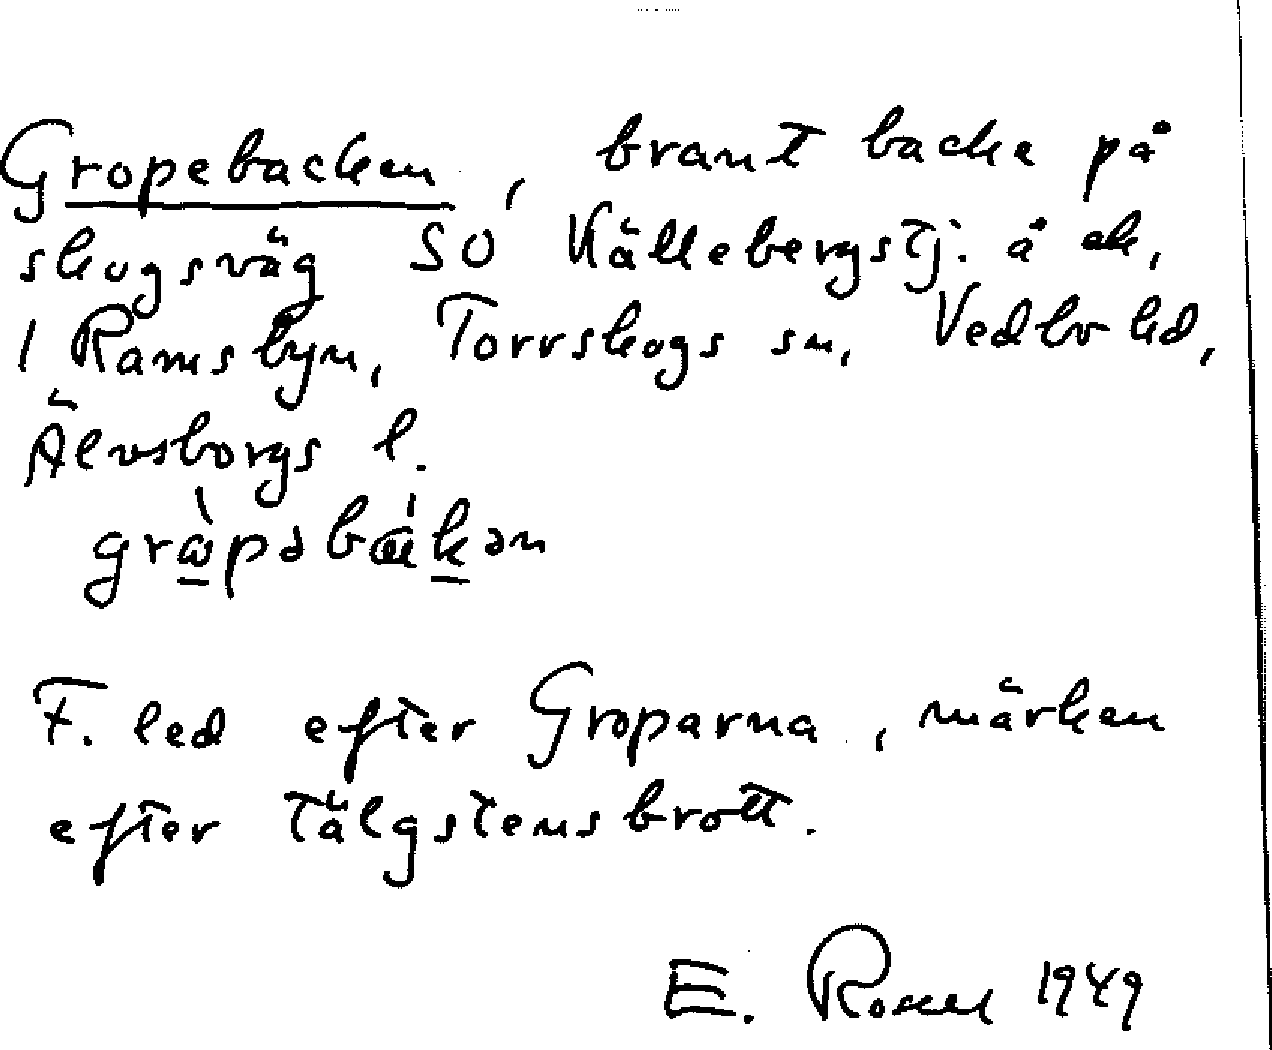 Gropebacken, brant backe på
skogsväg SO Källebergstj. å ek,
1 Ramsbyn, Torrskogs sn, Vedbo hd,
Älvsborgs l.
F. led efter Groparna, märken
efter Tälgstensbrott.
E. Rosell 1949